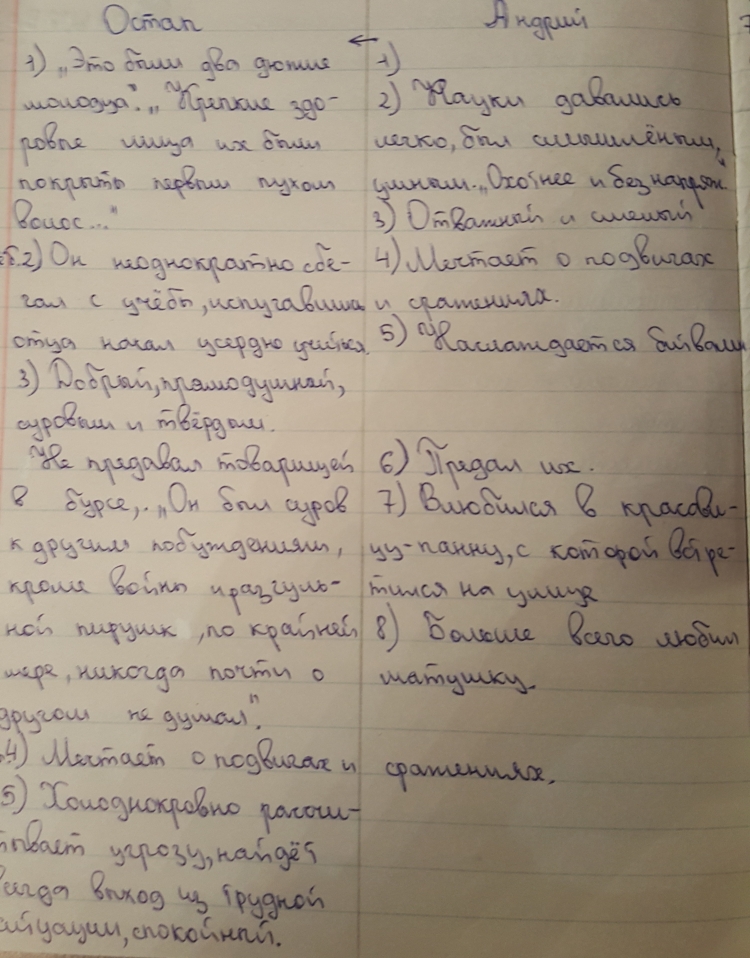 Остап
1) „Это были два дюжие
молодца". „Крепкие здо-
ровые лица их были
покрыты первым пухом
волос..."
2) Он неоднократно сбе-
гал с учёбы, испугавшись
отца начал усердно учиться.
3) Добрый, прямодушный,
суровым и твёрдым.
Не предавал товарищей
в бурсе,. „Он был суров
к другим побуждениям,
кроме войны и разгуль-
ной пирушк, по крайней
мере, никогда почти о
другом не думал".
4) Мечтает о подвигах и сражениях.
5) Холоднокровно рассчи-
тывает угрозу, найдёт
всегда выход из трудной
ситуации, спокойный.
Андрий
← 1)
2) Науки давались
легко, был смышлёным,
умным. „Охотнее и без напряж."
3) Отважный и смелый
4) Мечтает о подвигах
и сражениях.
5) Наслаждается битвами
6) Предал их.
7) Влюбился в красави-
цу-панну, с которой встре-
тился на улице
8) Больше всего любил
матушку.
7